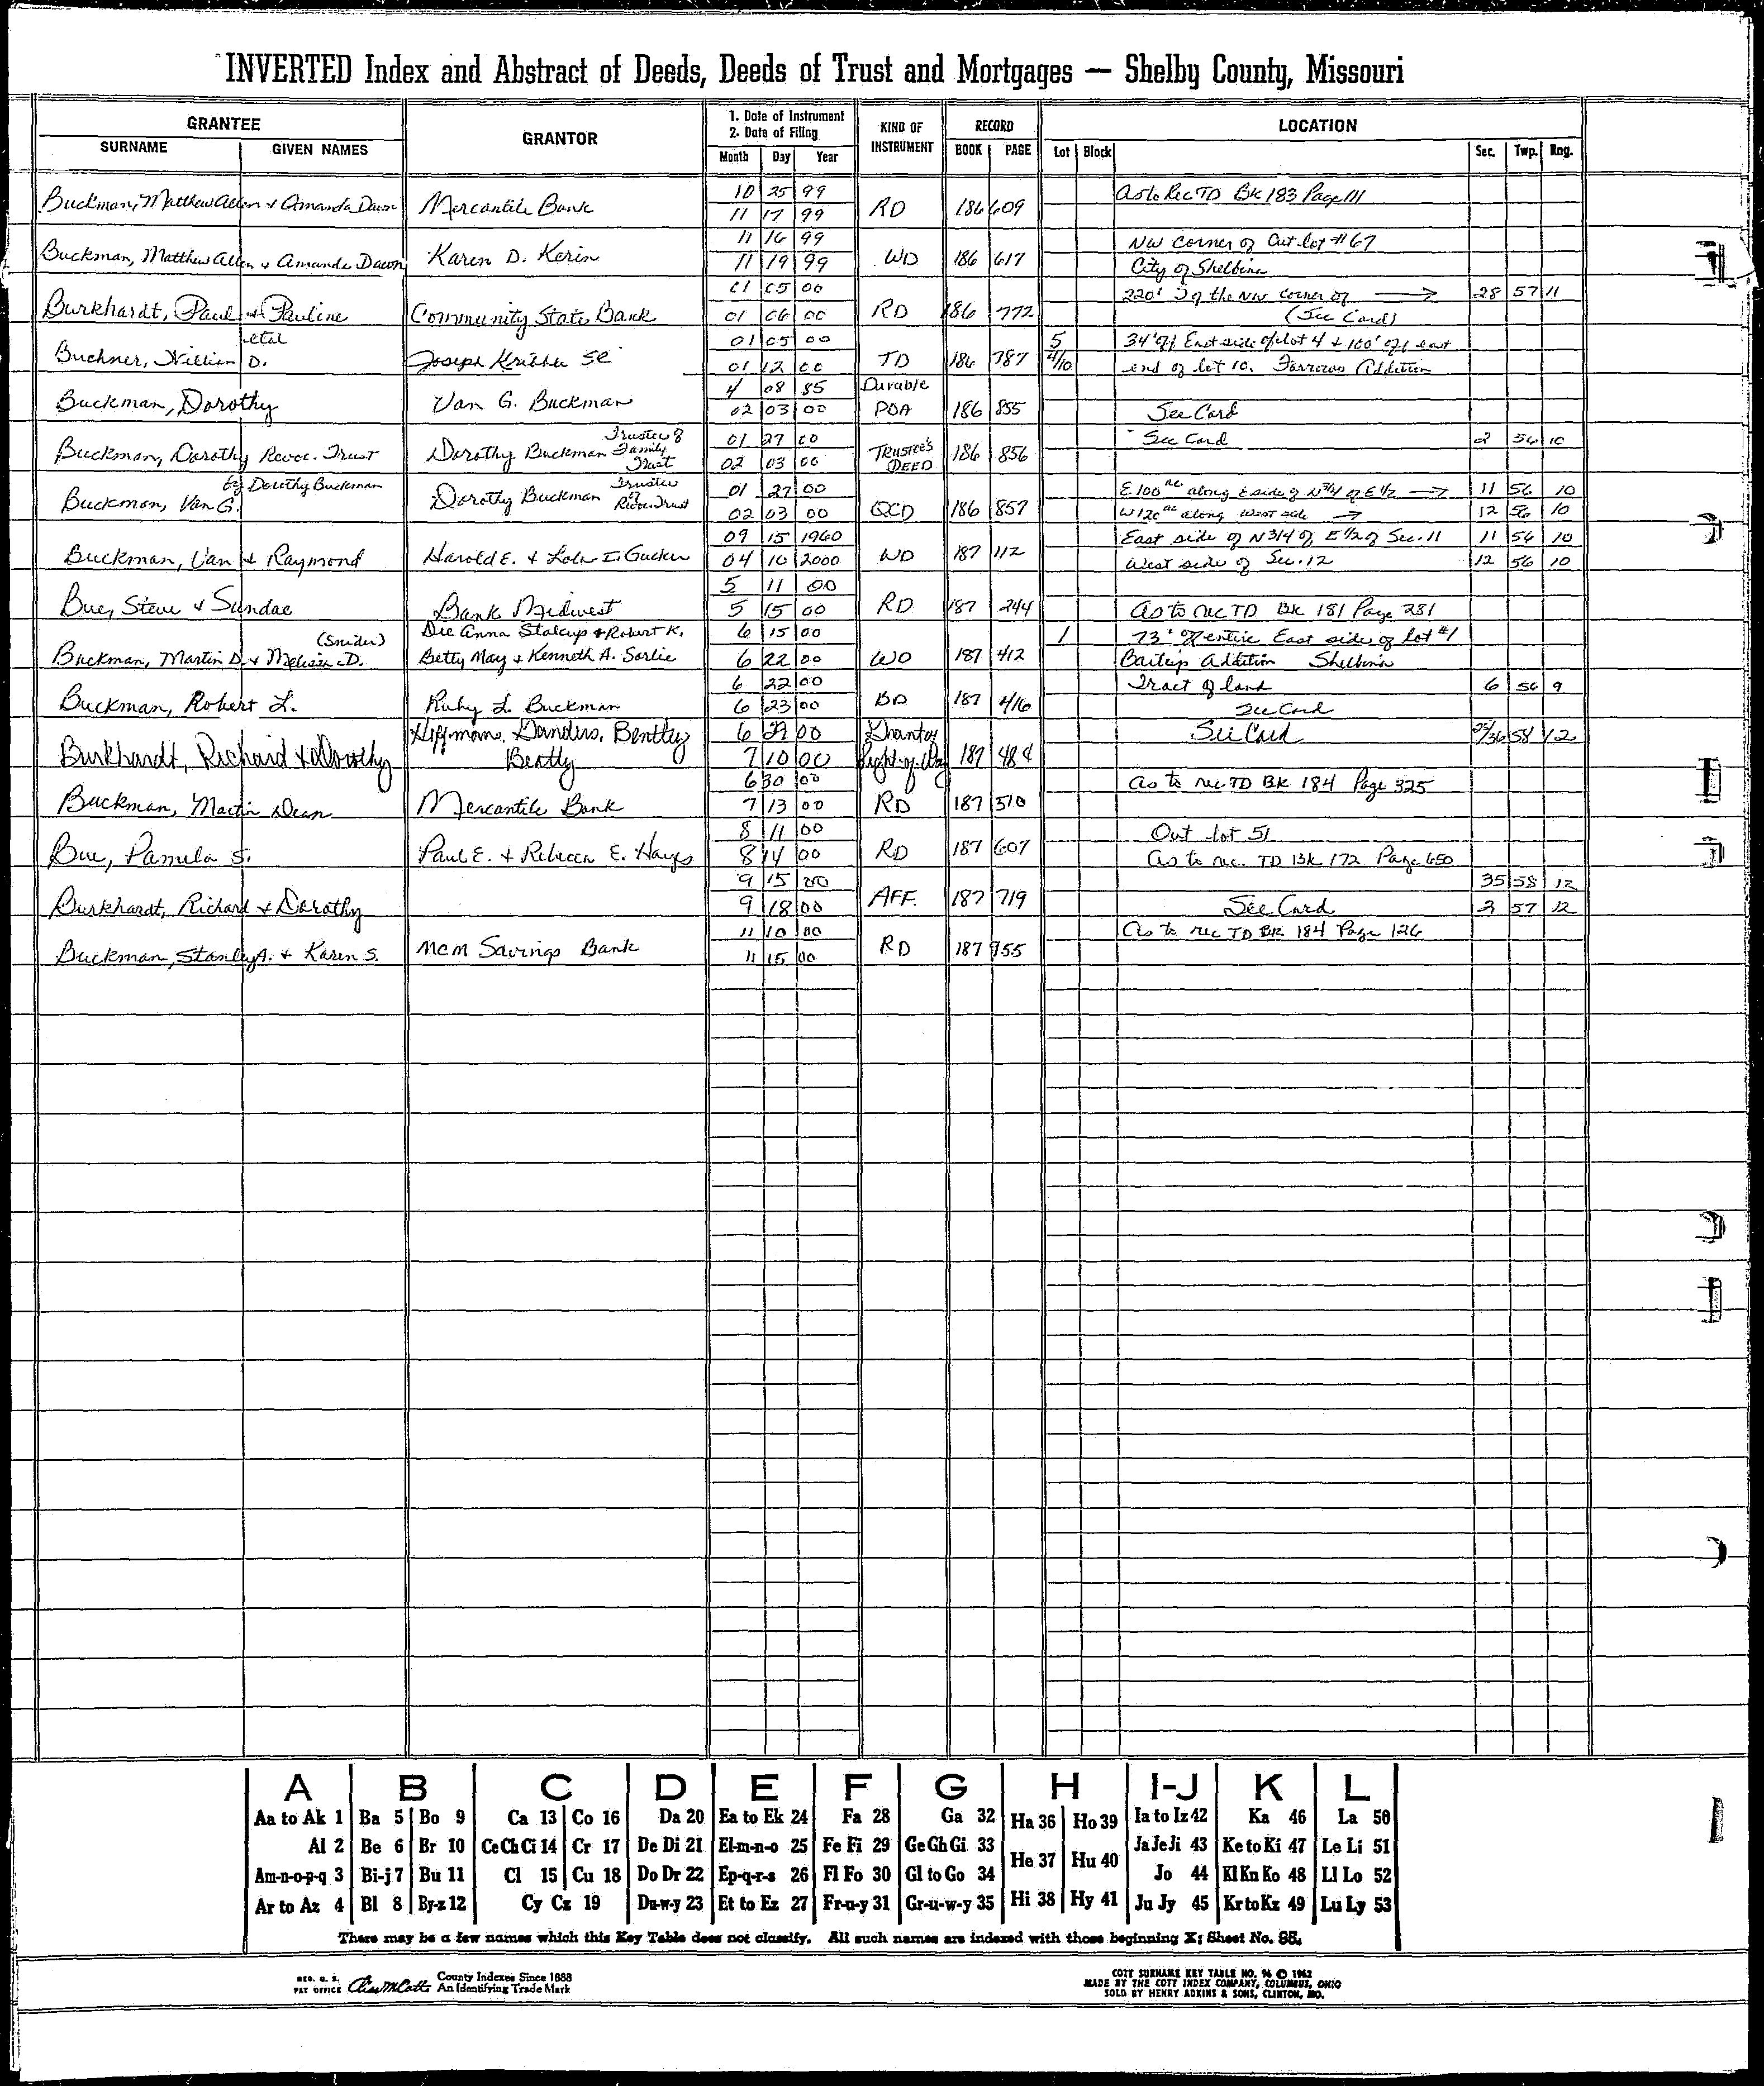 INVERTED Index and Abstract of Deeds, Deeds of Trust and Mortgages — Shelby County, Missouri
GRANTEE
SURNAME GIVEN NAMES
GRANTOR
1. Date of Instrument
2. Date of Filing
Month Day Year
KIND OF
INSTRUMENT
RECORD
BOOK PAGE
LOCATION
Lot Block Sec. Twp. Rng.
10 25 99 As to Rec TD Bk 183 Page 111
Buckman, Matthew Allen & Amanda Dawn Mercantile Bank 11 17 99 RD 186 609
11 16 99 NW Corner of Out-lot #67
Buckman, Matthew Allen & Amanda Dawn Karen D. Kerin 11 19 99 WD 186 617 City of Shelbina
01 05 00 220' S of the NW Corner of → 28 57 11
Burkhardt, Paul & Pauline Community State Bank 01 06 00 RD 186 772 (See Card)
etal 01 05 00 5 34' off East side of Lot 4 & 100' off east
Buchner, William D. Joseph Sr 01 12 00 TD 186 787 4/10 end of lot 10. Farrows Addition
4 08 85 Durable
Buckman, Dorothy Van G. Buckman 02 03 00 POA 186 855 See Card
Trustee of 01 27 00 See Card 2 56 10
Buckman, Dorothy Revoc. Trust Dorothy Buckman Family Trust 02 03 00 TRUSTEE'S DEED 186 856
by Dorothy Buckman Trustee 01 27 00 E 100 ac along E side of N 3/4 of E 1/2 → 11 56 10
Buckman, Van G. Dorothy Buckman of Revoc. Trust 02 03 00 QCD 186 857 W 120 ac along West side → 12 56 10
09 15 1960 East side of N 3/4 of E 1/2 of Sec. 11 11 56 10
Buckman, Van & Raymond Harold E. & Lola I. Gucker 04 10 2000 WD 187 112 West side of Sec. 12 12 56 10
5 11 00
Bue, Steve & Sundae Bank Midwest 5 15 00 RD 187 244 As to rec TD Bk 181 Page 281
(Snider) Dee Anna Stalcup & Robert K. 6 15 00 1 73' off entire East side of lot #1
Buckman, Martin D. & Melissa D. Betty May & Kenneth A. Sorlie 6 22 00 WD 187 412 Addition Shelbina
6 22 00 Tract of land 6 56 9
Buckman, Robert L. Ruby L. Buckman 6 23 00 BD 187 416 See Card
Hoffman, Sanders, Bentley 6 29 00 Grant of See Card 25/36 58 12
Burkhardt, Richard & Dorothy Beatty 7 10 00 Right-of-Way 187 484
6 30 00 As to rec TD Bk 184 Page 325
Buckman, Martin Dean Mercantile Bank 7 13 00 RD 187 510
8 11 00 Out Lot 51
Bue, Pamela S. Paul E. & Rebecca E. Hayes 8 14 00 RD 187 607 As to rec. TD Bk 172 Page 650
9 15 00 35 58 12
Burkhardt, Richard & Dorothy 9 18 00 AFF. 187 719 See Card 2 57 12
11 10 00 As to rec TD Bk 184 Page 126
Buckman, Stanley A. & Karen S. MCM Savings Bank 11 15 00 RD 187 955
A B C D E F G H I-J K L
Aa to Ak 1 Ba 5 Bo 9 Ca 13 Co 16 Da 20 Ea to Ek 24 Fa 28 Ga 32 Ha 36 Ho 39 Ia to Iz 42 Ka 46 La 50
Al 2 Be 6 Br 10 Ce Ch Ci 14 Cr 17 De Di 21 El-m-n-o 25 Fe Fi 29 Ge Gh Gi 33 He 37 Hu 40 Ja Je Ji 43 Ke to Ki 47 Le Li 51
Am-n-o-p-q 3 Bi-j 7 Bu 11 Cl 15 Cu 18 Do Dr 22 Ep-q-r-s 26 Fl Fo 30 Gl to Go 34 Jo 44 Kl Kn Ko 48 Ll Lo 52
Ar to Az 4 Bl 8 By-z 12 Cy Cz 19 Du-w-y 23 Et to Ez 27 Fr-u-y 31 Gr-u-w-y 35 Hi 38 Hy 41 Ju Jy 45 Kr to Kz 49 Lu Ly 53
There may be a few names which this Key Table does not classify. All such names are indexed with those beginning X; Sheet No. 85.
REG. U. S. PAT OFFICE County Indexes Since 1888
An Identifying Trade Mark
COTT SURNAME KEY TABLE NO. 96 © 1962
MADE BY THE COTT INDEX COMPANY, COLUMBUS, OHIO
SOLD BY HENRY ADKINS & SONS, CLINTON, MO.